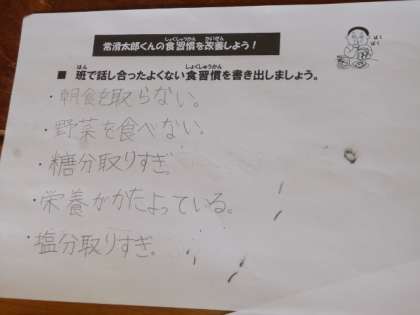 常済太郎くんの食習慣を改善しよう！
■ 班で話し合ったよくない食習慣を書き出しましょう。
・朝食を取らない。
・野菜を食べない。
・糖分取りすぎ
・栄養がかたよっている。
・塩分取りすぎ。